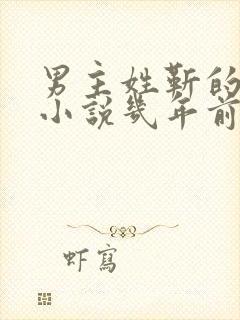 男主姓靳的
小說幾年前
虾寫